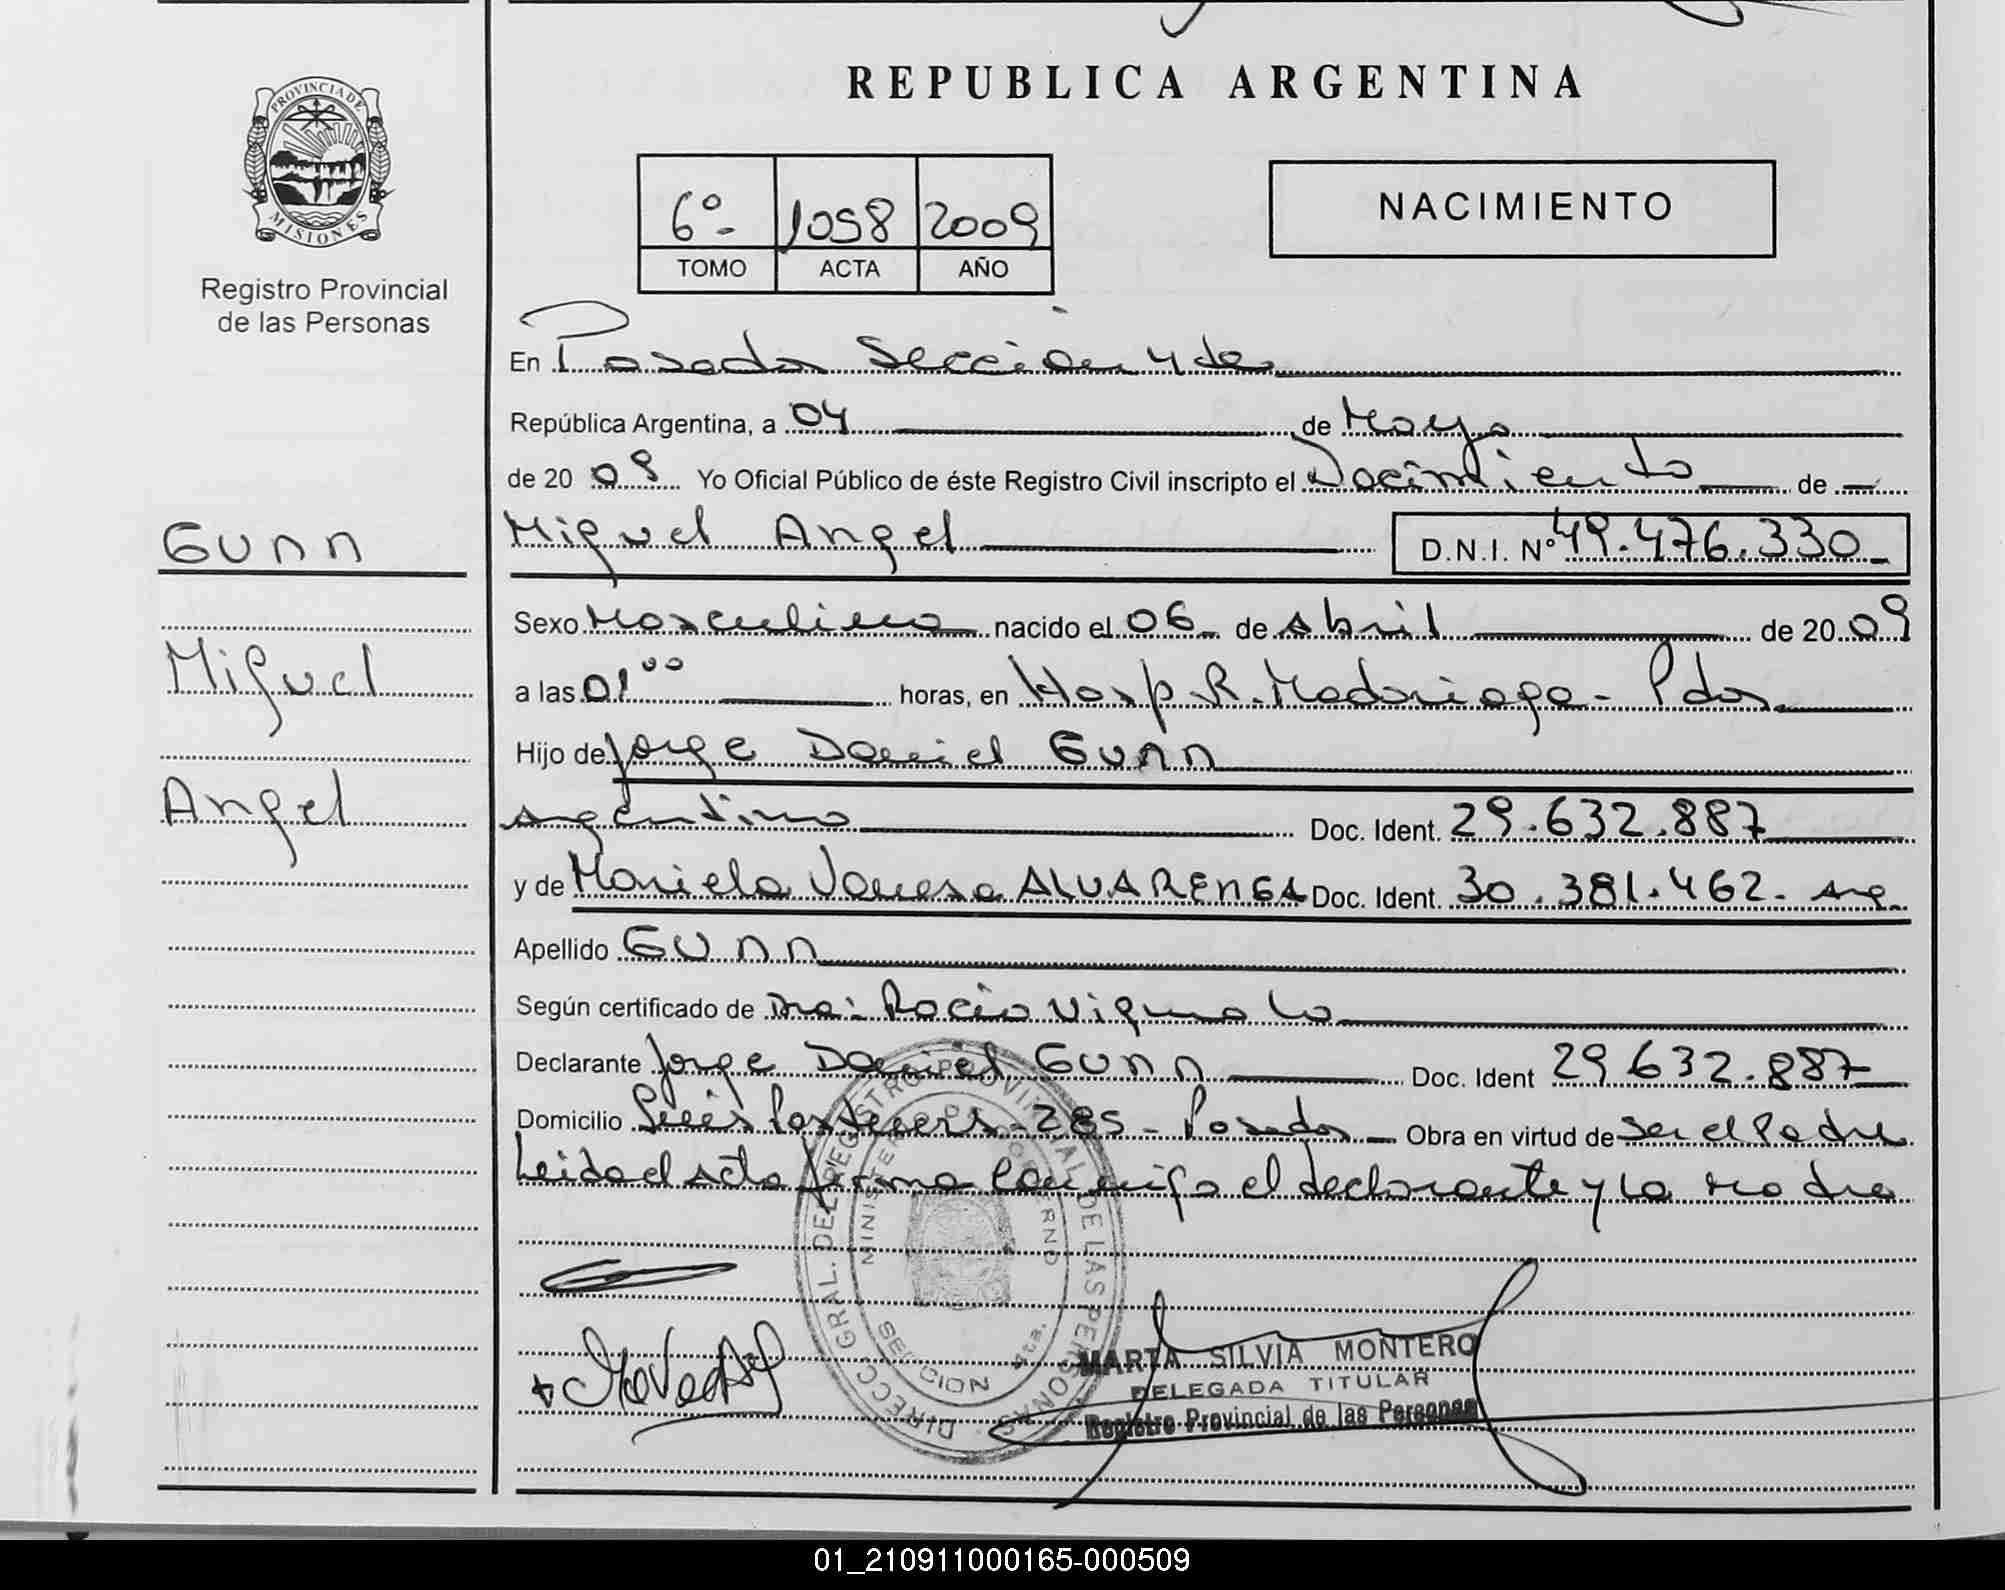 REPUBLICA ARGENTINA
PROVINCIA DE
MISIONES
Registro Provincial
de las Personas
6º 1058 2009
TOMO ACTA AÑO
NACIMIENTO
En Posadas Sección 4ta
República Argentina, a 04 de Mayo
de 20 09 Yo Oficial Público de éste Registro Civil inscripto el Nacimiento de
Miguel Angel D.N.I. Nº 49.476.330
GUNN
Miguel
Angel
Sexo Masculino nacido el 06 de Abril de 20 09
a las 01 00 horas, en Hosp R. Madariaga - Pdas
Hijo de Jorge Daniel GUNN
argentino Doc. Ident. 29.632.887
y de Mariela Vanesa ALVARENGA Doc. Ident. 30.381.462. arg
Apellido GUNN
Según certificado de Dra: Rocío Vignolo
Declarante Jorge Daniel GUNN Doc. Ident 29 632.887
Domicilio Luis Pasteur - 285 - Posadas Obra en virtud de ser el Padre
Leida el acta firma conmigo el declarante y la madre
DIRECC GRAL. DEL REGISTRO PROVINCIAL DE LAS PERSONAS
MINISTERIO DE GOBIERNO
SECCION 4ta.
MARTA SILVIA MONTERO
DELEGADA TITULAR
Registro Provincial de las Personas
01_210911000165-000509